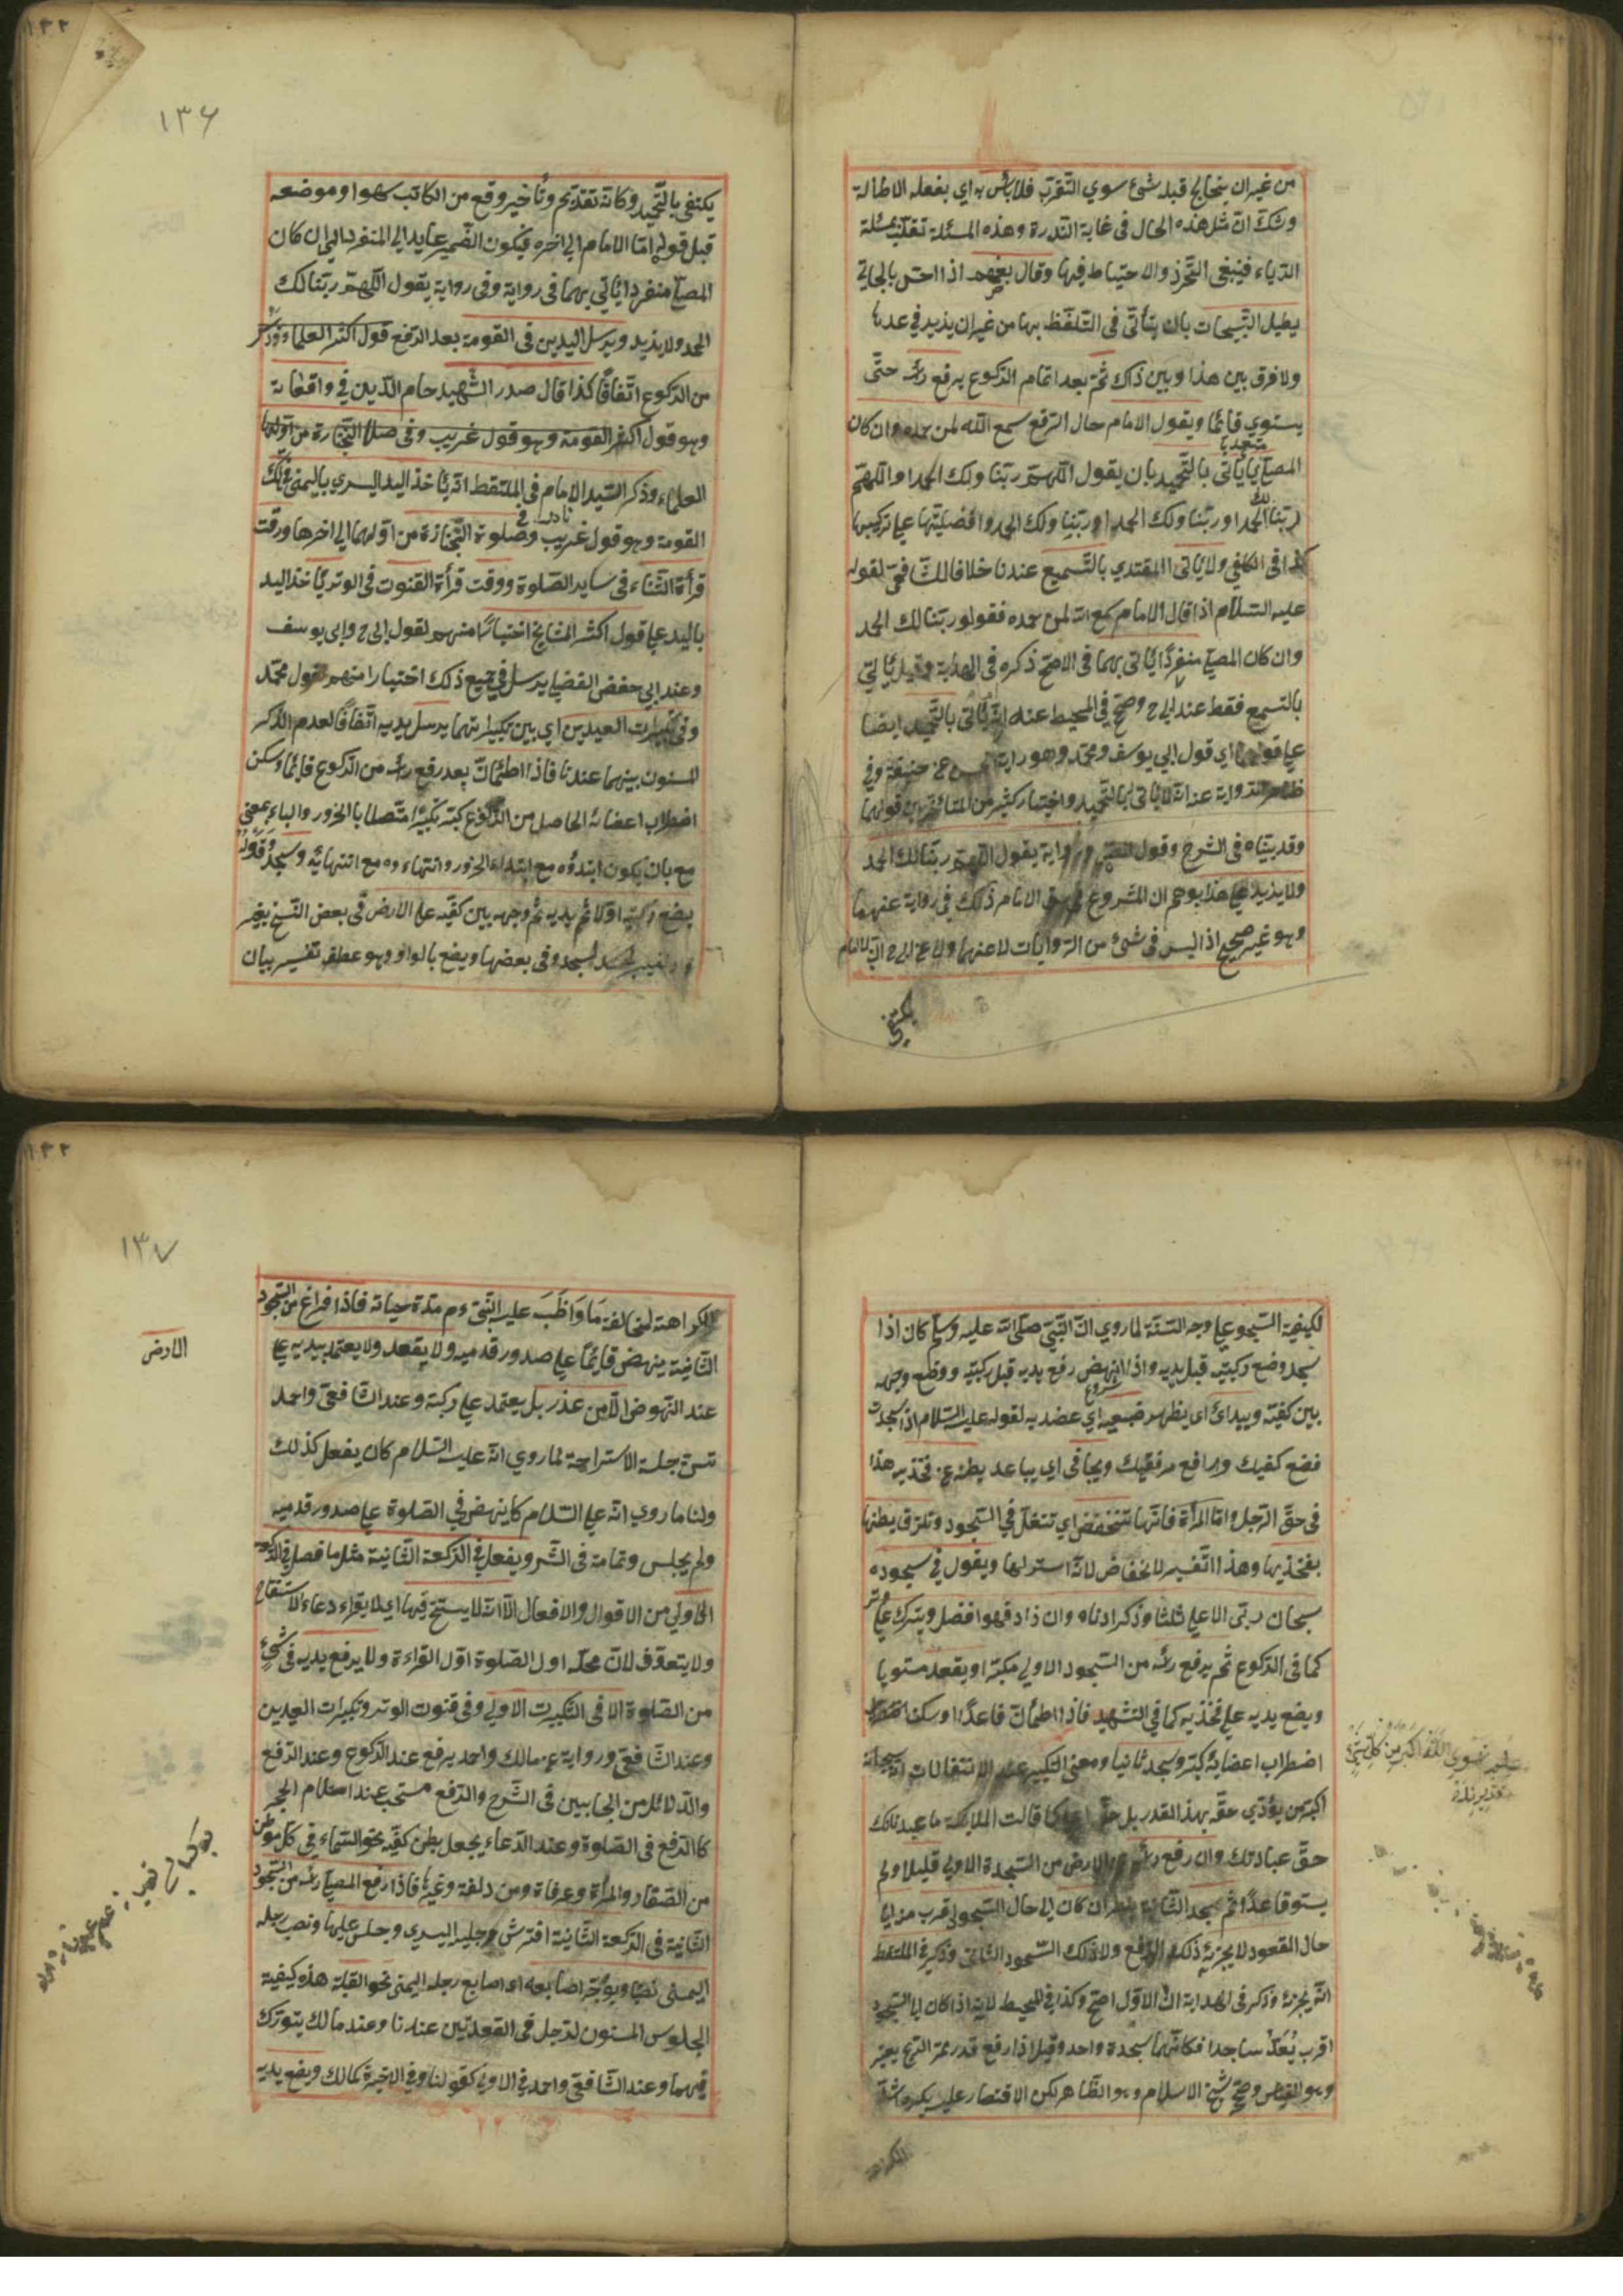 من غير ان يتخالج قلبه شئ سوي التقرب فلا بأس به اي بفعله الاطالة
وشك ان مثل هذه الحال في غاية الندرة وهذه المسئلة تلقب بمسئلة
الرياء فينبغي التحرز والاحتياط فيها وقال بعضهم اذا احس بالجائي
يطيل التسبيحات بان يتأتى في التلفظ بها من غير ان يزيد في عددها
ولا فرق بين هذا وبين ذاك ثم بعد اتمام الركوع يرفع رأسه حتى
يستوي قائما ويقول الامام حال الرفع سمع الله لمن حمده وان كان
المصلي مقتديا يأتي بالتحميد بان يقول اللهم ربنا ولك الحمد او اللهم
ربنا لك الحمد او ربنا ولك الحمد او ربنا ولك الحمد وافضليتها على تركيبها
كذا في الكافي ولا يأتي المقتدي بالتسميع عندنا خلافا للشافعي لقوله
عليه السلام اذا قال الامام سمع الله لمن حمده فقولو ربنا لك الحمد
وان كان المصلي منفردا يأتي بهما في الاصح ذكره في الهداية وقيل يأتي
بالتسمع فقط عند ابي ح وصحح في المحيط عنه انه يأتي بالتحميد ايضا
على قولهما اي قول ابي يوسف ومحمد وهو رواية الحسن عن حنيفة وفي
ظاهر الرواية عنه انه لا يأتي بالتحميد واختيار كثير من المتأخرين قولهما
وقد بيناه في الشرح وقول المص وفي رواية يقول اللهم ربنا لك الحمد
ولا يزيد على هذا يوهم ان المشروع في حق الامام ذلك في رواية عنهما
وهو غير صحيح اذ ليس في شئ من الروايات لا عنهما ولا عن ابي ح ان الامام
يكتفي
١٣٦
يكتفي بالتحميد وكانه تقديم وتأخير وقع من الكاتب سهوا وموضعه
قبل قوله اما الامام الى اخره فيكون الضمير عايد الي المنفرد اي ان كان
المصلي منفردا يأتي بهما في رواية وفي رواية يقول اللهم ربنا لك
الحمد ولا يزيد ويرسل اليدين في القومة بعد الرفع قول اكثر العلماء وذكر
من الركوع اتفاقا كذا قال صدر الشهيد حسام الدين في واقعاته
وهو قول اكثر القومة وهو قول غريب وفي صلاة الجنازة من اولها
العلماء وذكر السيد الامام في الملتقط انه يأخذ اليد اليسري باليمنى في تلك
القومة وهو قول غريب نادر وفي صلوة الجنازة من اولها الي اخرها ووقت
قرأة الثناء في ساير الصلوة ووقت قرأة القنوت في الوتر يأخذ اليد
باليد على قول اكثر المشايخ اختيارا منهم لقول ابي ح وابي يوسف
وعند ابي حفص الفضلي يرسل في جميع ذلك اختيارا منهم لقول محمد
وفي تكبيرات العيدين اي بين تكبيراتهما يرسل يديه اتفاقا لعدم الذكر
المسنون بينهما عندنا فاذا اطمأن بعد رفع رأسه من الركوع قائما وسكن
اضطراب اعضائه الحاصل من الركوع كبر تكبيرا متصلا بالخرور والباء بمعنى
مع بان يكون ابتدؤه مع ابتداء الخرور وانتهاءوه مع انتهائه وسجد وقوله
يضع ركبتيه اولا ثم يديه ثم وجهه بين كفيه على الارض في بعض النسخ بغير
واو تفسير لسجد وفي بعضها ويضع بالواو وهو عطف تفسير بيان
لكيفية السجود على وجه السنة لما روي ان النبي صلى الله عليه وسلم كان اذا
سجد وضع ركبتيه قبل يديه واذا نهض رفع يديه قبل ركبتيه ووضع وجهه
بين كفيه ويبدئ اي يظهر ضبعيه اي عضديه لقوله عليه السلام اذا سجدت
فضع كفيك وارفع مرفقيك ويجافي اي يباعد بطنه عن فخذيه هذا
في حق الرجل واما المرأة فانها تنخفض اي تتسفل في السجود وتلزق بطنها
بفخذيها وهذا التفسير لانخفاض لانه استر لها ويقول في سجوده
سبحان ربي الاعلى ثلثا وذكر ادناه وان زاد فهوا فضل ويترك على وتر
كما في الركوع ثم يرفع رأسه من السجود الاولي مكبرا ويقعد مستويا
ويضع يديه على فخذيه كما في التشهد فاذا اطمأن قاعدا وسكن
اضطراب اعضايه كبر وسجد ثانيا ومعنى التكبير عند الانتقالات انه سبحانه
اكبر من يؤدي حقه بهذا القدر بل حقه اعلى كما قالت الملايكة ما عبدناك
حق عبادتك وان رفع رأسه من الارض من السجدة الاولي قليلا ولم
يستو قاعدا ثم سجد الثانية ينظر ان كان الى حال السجود اقرب منه الى
حال القعود لا يجزيه ذلك الرفع ولا ذلك السجود الثاني وذكر في الملتقط
انه يجزئه وذكر في الهداية ان الاول اصح وكذا في المحيط لانه اذا كان الى السجود
اقرب يعد ساجدا فكانهما سجدة واحد وقيل اذا رفع قدر تمر الريح يعتبر
وهو القياس وصحح شيخ الاسلام وهو الظاهر لكن الاقتصار عليه يكره اشد
الكراهة
١٣٧
الكراهة لمخالفة ما واظب عليه النبي ءم مدة حياته فاذا فراغ من السجود
الثانية ينهض قايما على صدور قدميه ولا يقعد ولا يعتمد بيديه على
الارض
عند النهوض الا من عذر بل يعتمد على ركبته وعند الشافعي واحمد
تسن جلسة الاستراحة لما روي انه عليه السلام كان يفعل كذلك
ولنا ما روي انه على السلام كا ينهض في الصلوة على صدور قدميه
ولم يجلس وتمامة في الشرو يفعل في الركعة الثانية مثل ما فصل في الركعة
الاولي من الاقوال والافعال الا انه لا يستفتح فيها اي لا يقراء دعاء الاستفتاح
ولا يتعوذ لان محله اول الصلوة اول القراءة ولا يرفع يديه في شئ
من الصلوة الا في التكبيرت الاولي وفي قنوت الوتر وتكبيرات العيدين
وعند الشافعي ورواية عن مالك واحد يرفع عند الركوع وعند الرفع
والدلائل من الجانبين في الشرح والرفع مستحب عند استلام الحجر
كا الرفع في الصلوة وعند الدعاء يجعل بطن كفيه نحو السماء في كل موطن
من الصفا والمروة وعرفاة ومزدلفة وغيرها فاذا رفع المصلي رأسه من السجود
الثانية في الركعة الثانية افترش رجليه اليسري وجلس عليها ونصب رجله
اليمنى نصبا ويوجه اصابعه اي اصابع رجله اليمنى نحو القبلة هذه كيفية
الجلوس المسنون لرجل في القعدتين عندنا وعند مالك يتورك
فيهما وعند الشافعي واحمد في الاولى كقولنا وفي الاخيرة كمالك ويضع يديه